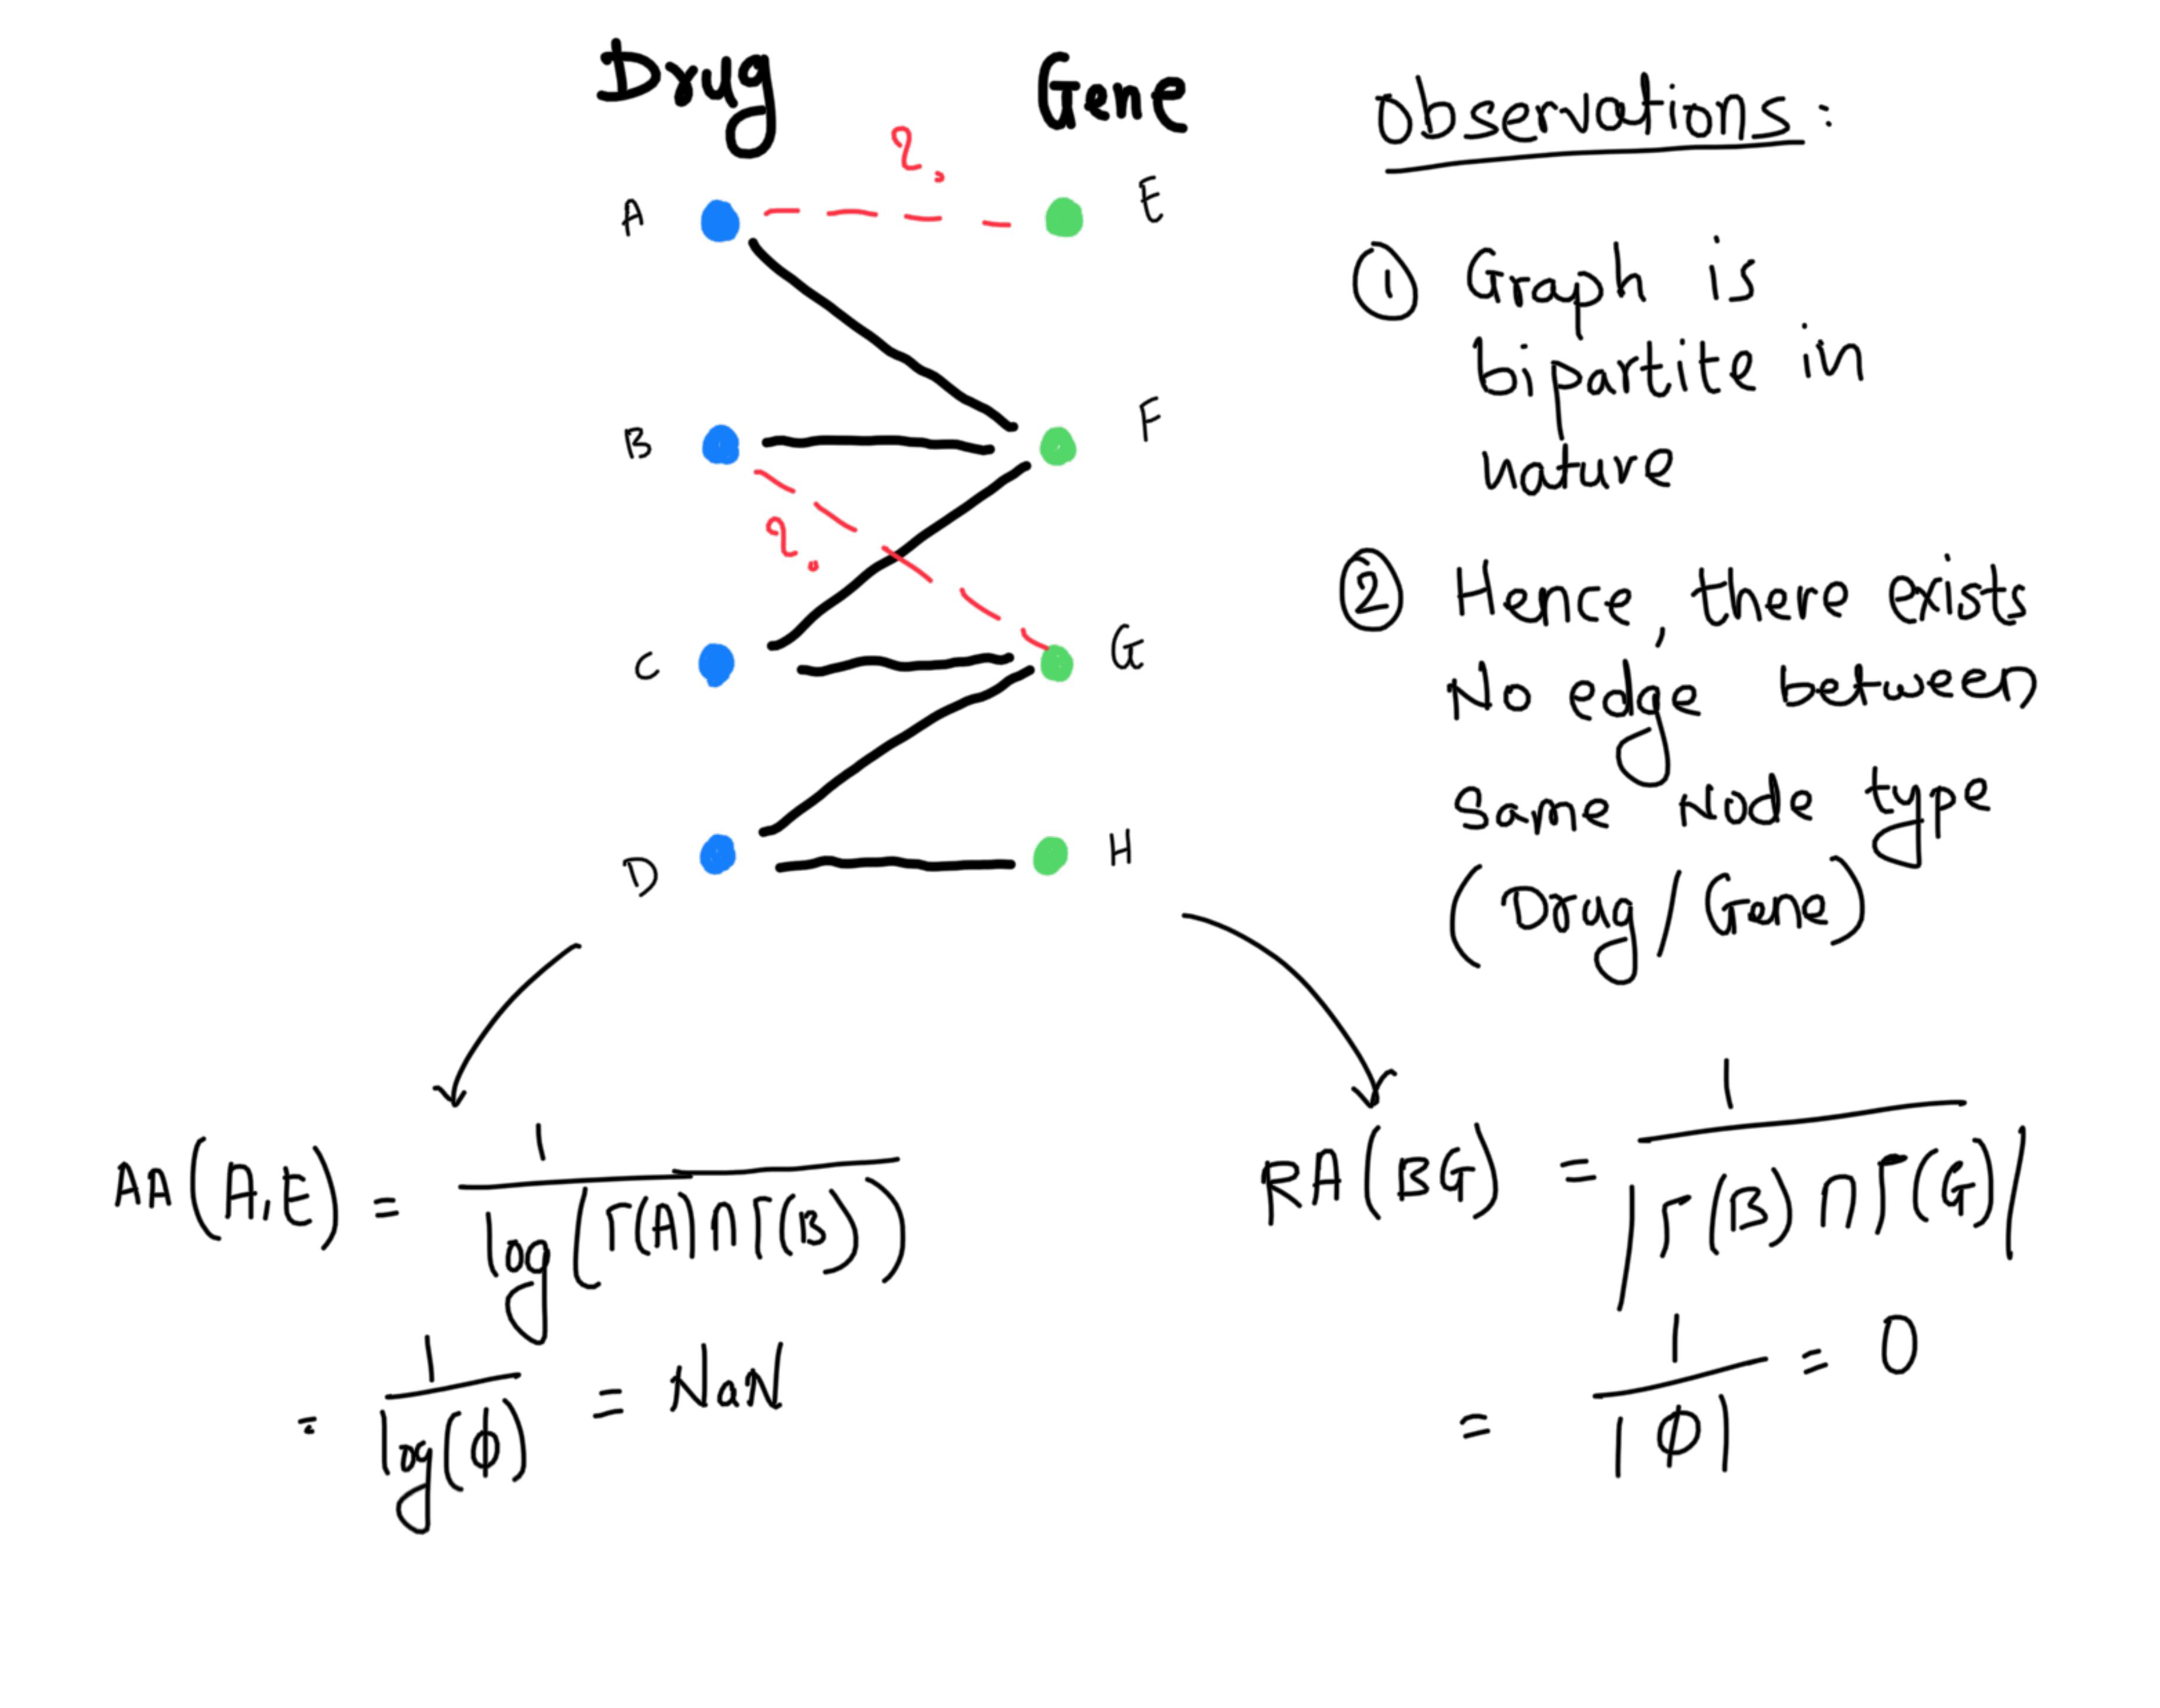 Drug Gene
?
A E
B F
?
C G
D H
Observations:
① Graph is
bipartite in
nature
② Hence, there exists
No edge between
same Node type
(Drug/Gene)
AA(A,E) = 1 / log(Γ(A)∩Γ(B))
= 1 / log(ϕ) = NaN
RA(BG) = 1 / |Γ(B)∩Γ(G)|
= 1 / |ϕ| = 0